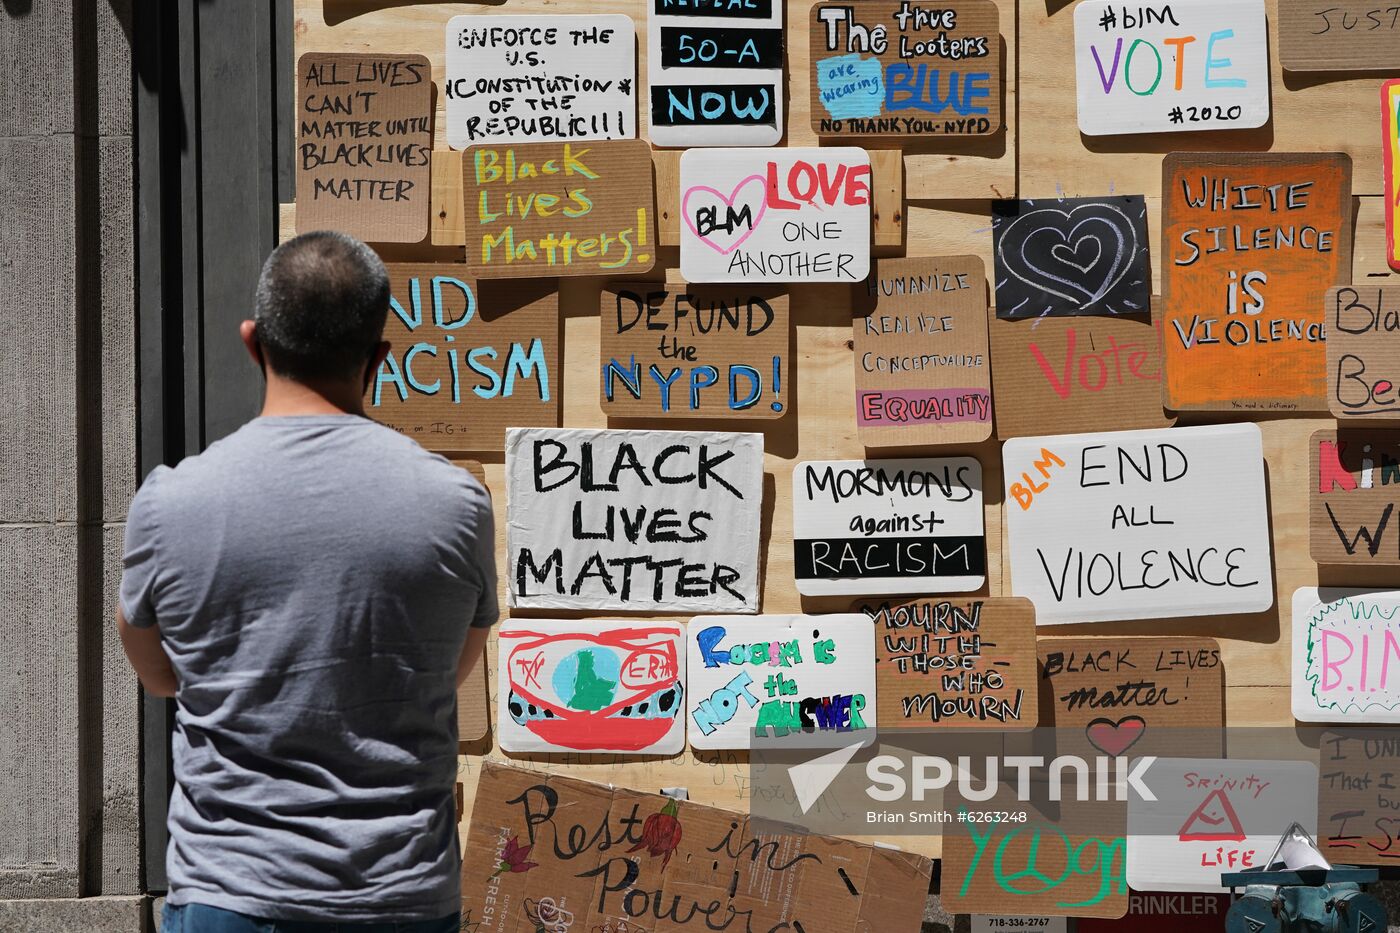 ALL LIVES
CAN'T
MATTER UNTIL
BLACK LIVES
MATTER
ENFORCE THE
U.S.
CONSTITUTION *
OF THE
REPUBLIC!!!
REPEAL
50-A
NOW
The true
Looters
are
wearing
BLUE
NO THANK YOU - NYPD
#blM
VOTE
#2020
JUST
Black
Lives
Matters!
BLM
LOVE
ONE
ANOTHER
WHITE
SILENCE
iS
VIOLENCE
You need a dictionary
ND
ACiSM
on IG is
DEFUND
the
NYPD!
HUMANIZE
REALIZE
CONCEPTUALIZE
EQUALITY
Vote
Bla
Be
BLACK
LIVES
MATTER
MORMONS
against
RACISM
BLM
END
ALL
VIOLENCE
Kin
Racism is
NOT
the
ANSWER
MOURN
WITH
THOSE
WHO
MOURN
BLACK LIVES
matter!
B.I.
SPUTNIK
Brian Smith #6263248
I UN
That I
bu
I S
LiFE
Rest in
Power
FARMFRESH
718-336-2767
RINKLER